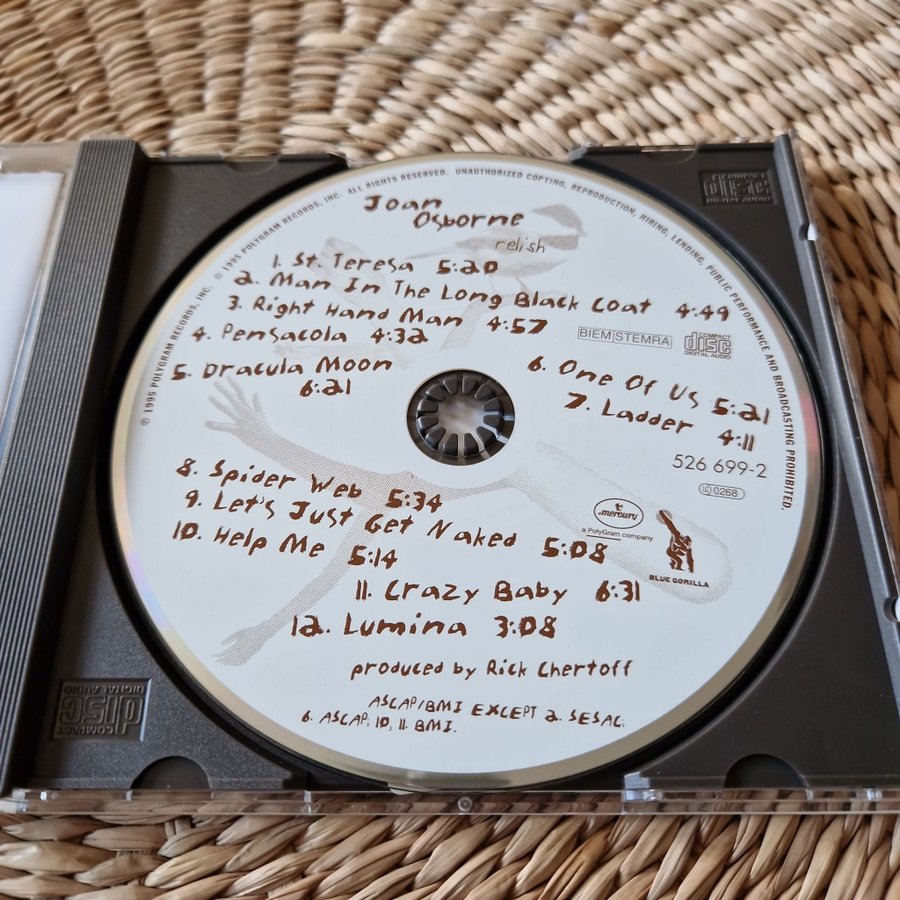 © 1995 POLYGRAM RECORDS, INC. ℗ 1995 POLYGRAM RECORDS, INC. ALL RIGHTS RESERVED. UNAUTHORIZED COPYING, REPRODUCTION, HIRING, LENDING, PUBLIC PERFORMANCE AND BROADCASTING PROHIBITED.
Joan
Osborne
relish
1. St. Teresa 5:20
2. Man In The Long Black Coat 4:49
3. Right Hand Man 4:57
4. Pensacola 4:32
BIEM|STEMRA
COMPACT
disc
DIGITAL AUDIO
5. Dracula Moon
6:21
6. One Of Us 5:21
7. Ladder 4:11
526 699-2
LC 0268
8. Spider Web 5:34
9. Let's Just Get Naked 5:08
10. Help Me 5:14
mercury
a PolyGram company
BLUE GORILLA
11. Crazy Baby 6:31
12. Lumina 3:08
produced by Rick Chertoff
ASCAP/BMI EXCEPT 2. SESAC;
6. ASCAP; 10, 11. BMI.
COMPACT
disc
DIGITAL AUDIO
COMPACT
disc
DIGITAL AUDIO